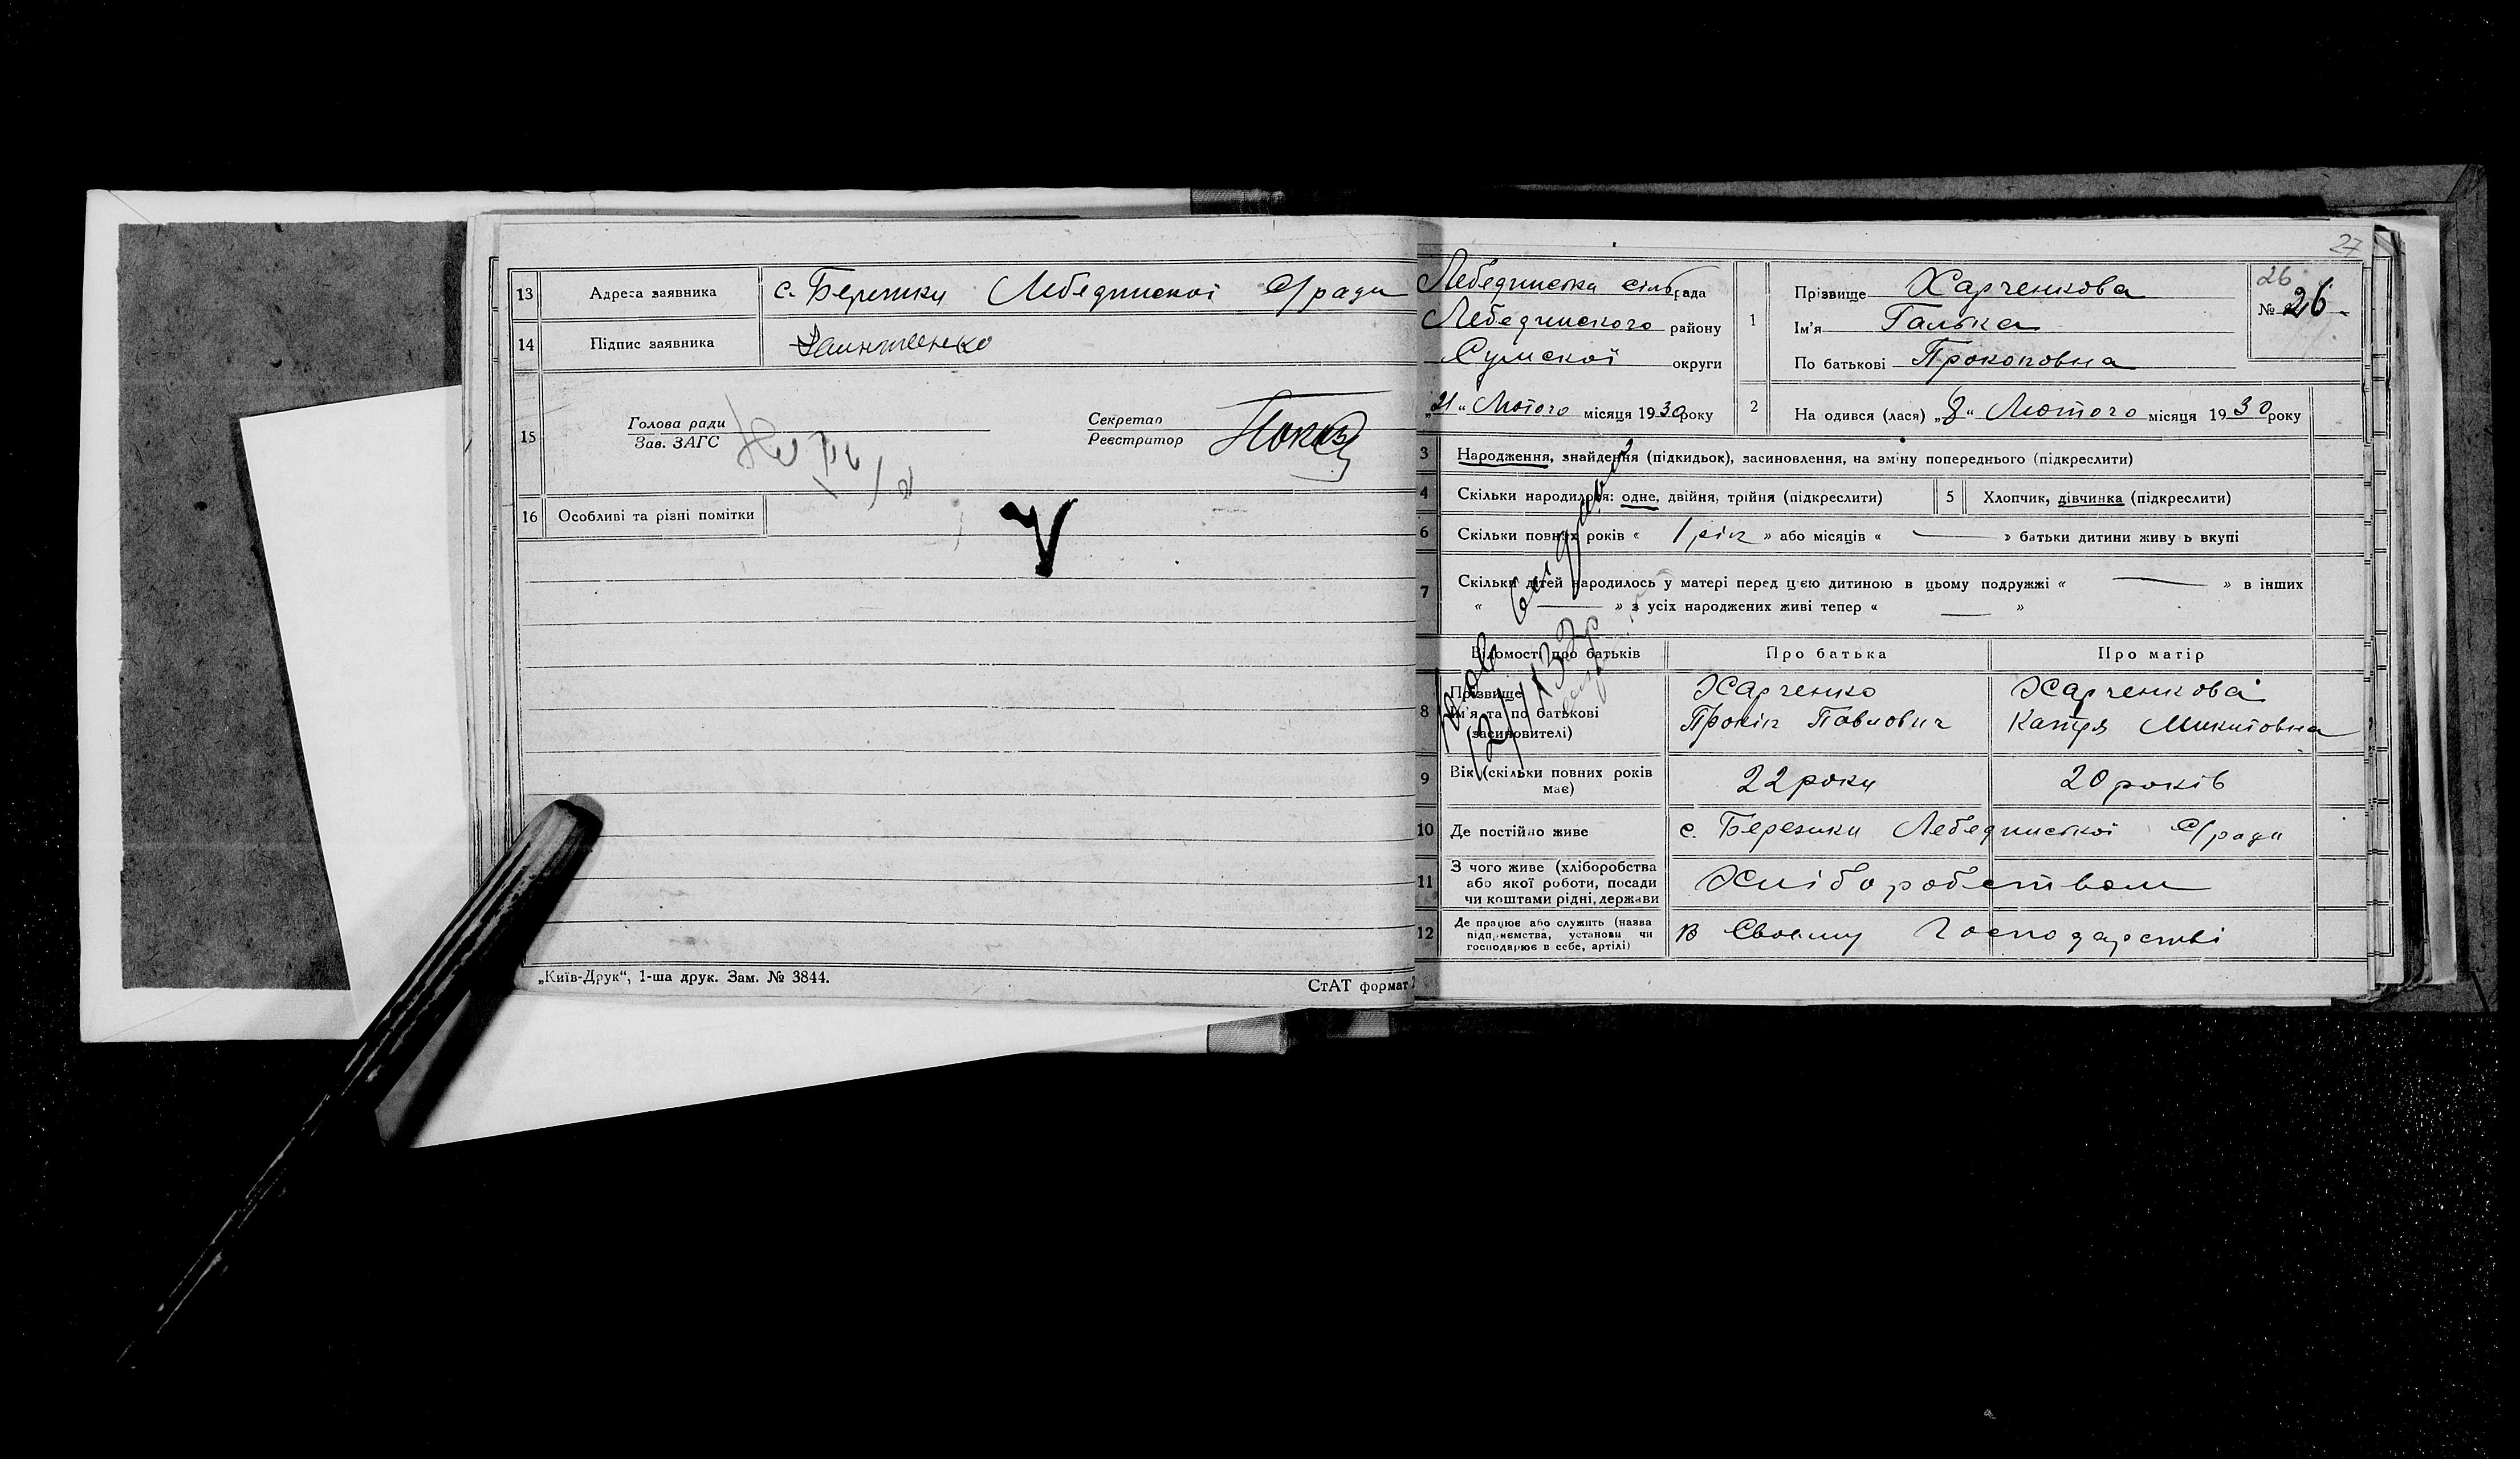 13 Адреса заявника с. Березики Лебединської с/ради
14 Підпис заявника
15 Голова ради
Зав. ЗАГС
Секретар
Реєстратор
16 Особливі та різні помітки
„Київ-Друк“, 1-ша друк. Зам. № 3844.
СтАТ формат
27
Лебединська сільрада
Лебединського району
Сумської округи
„21“ Лютого місяця 1930року
1 Прізвище Харченкова
Ім'я Галька
По батькові Прокоповна
26
№ 26
2 На одився (лася) „8“ Лютого місяця 1930року
3 Народження, знайдення (підкидьок), засиновлення, на зміну попереднього (підкреслити)
4 Скільки народилося: одне, двійня, трійня (підкреслити)
5 Хлопчик, дівчинка (підкреслити)
6 Скільки повних років « 1 рік » або місяців « — » батьки дитини живу ь вкупі
7 Скільки дітей народилось у матері перед цією дитиною в цьому подружжі « — » в інших
« — » з усіх народжених живі тепер « — »
Відомості про батьків Про батька Про матір
8 Прізвище Харченко Харченкова
Ім'я та по батькові Прокіп Павлович Катря Микитовна
(засиновителі)
9 Вік (скільки повних років має) 22 роки 20 років
10 Де постійно живе с. Березики Лебединської с/ради
11 З чого живе (хліборобства
або якої роботи, посади
чи коштами рідні, держави Хліборобством
12 Де працює або служить (назва
підприємства, установи чи
господарює в себе, артілі) В Своєму Господарстві